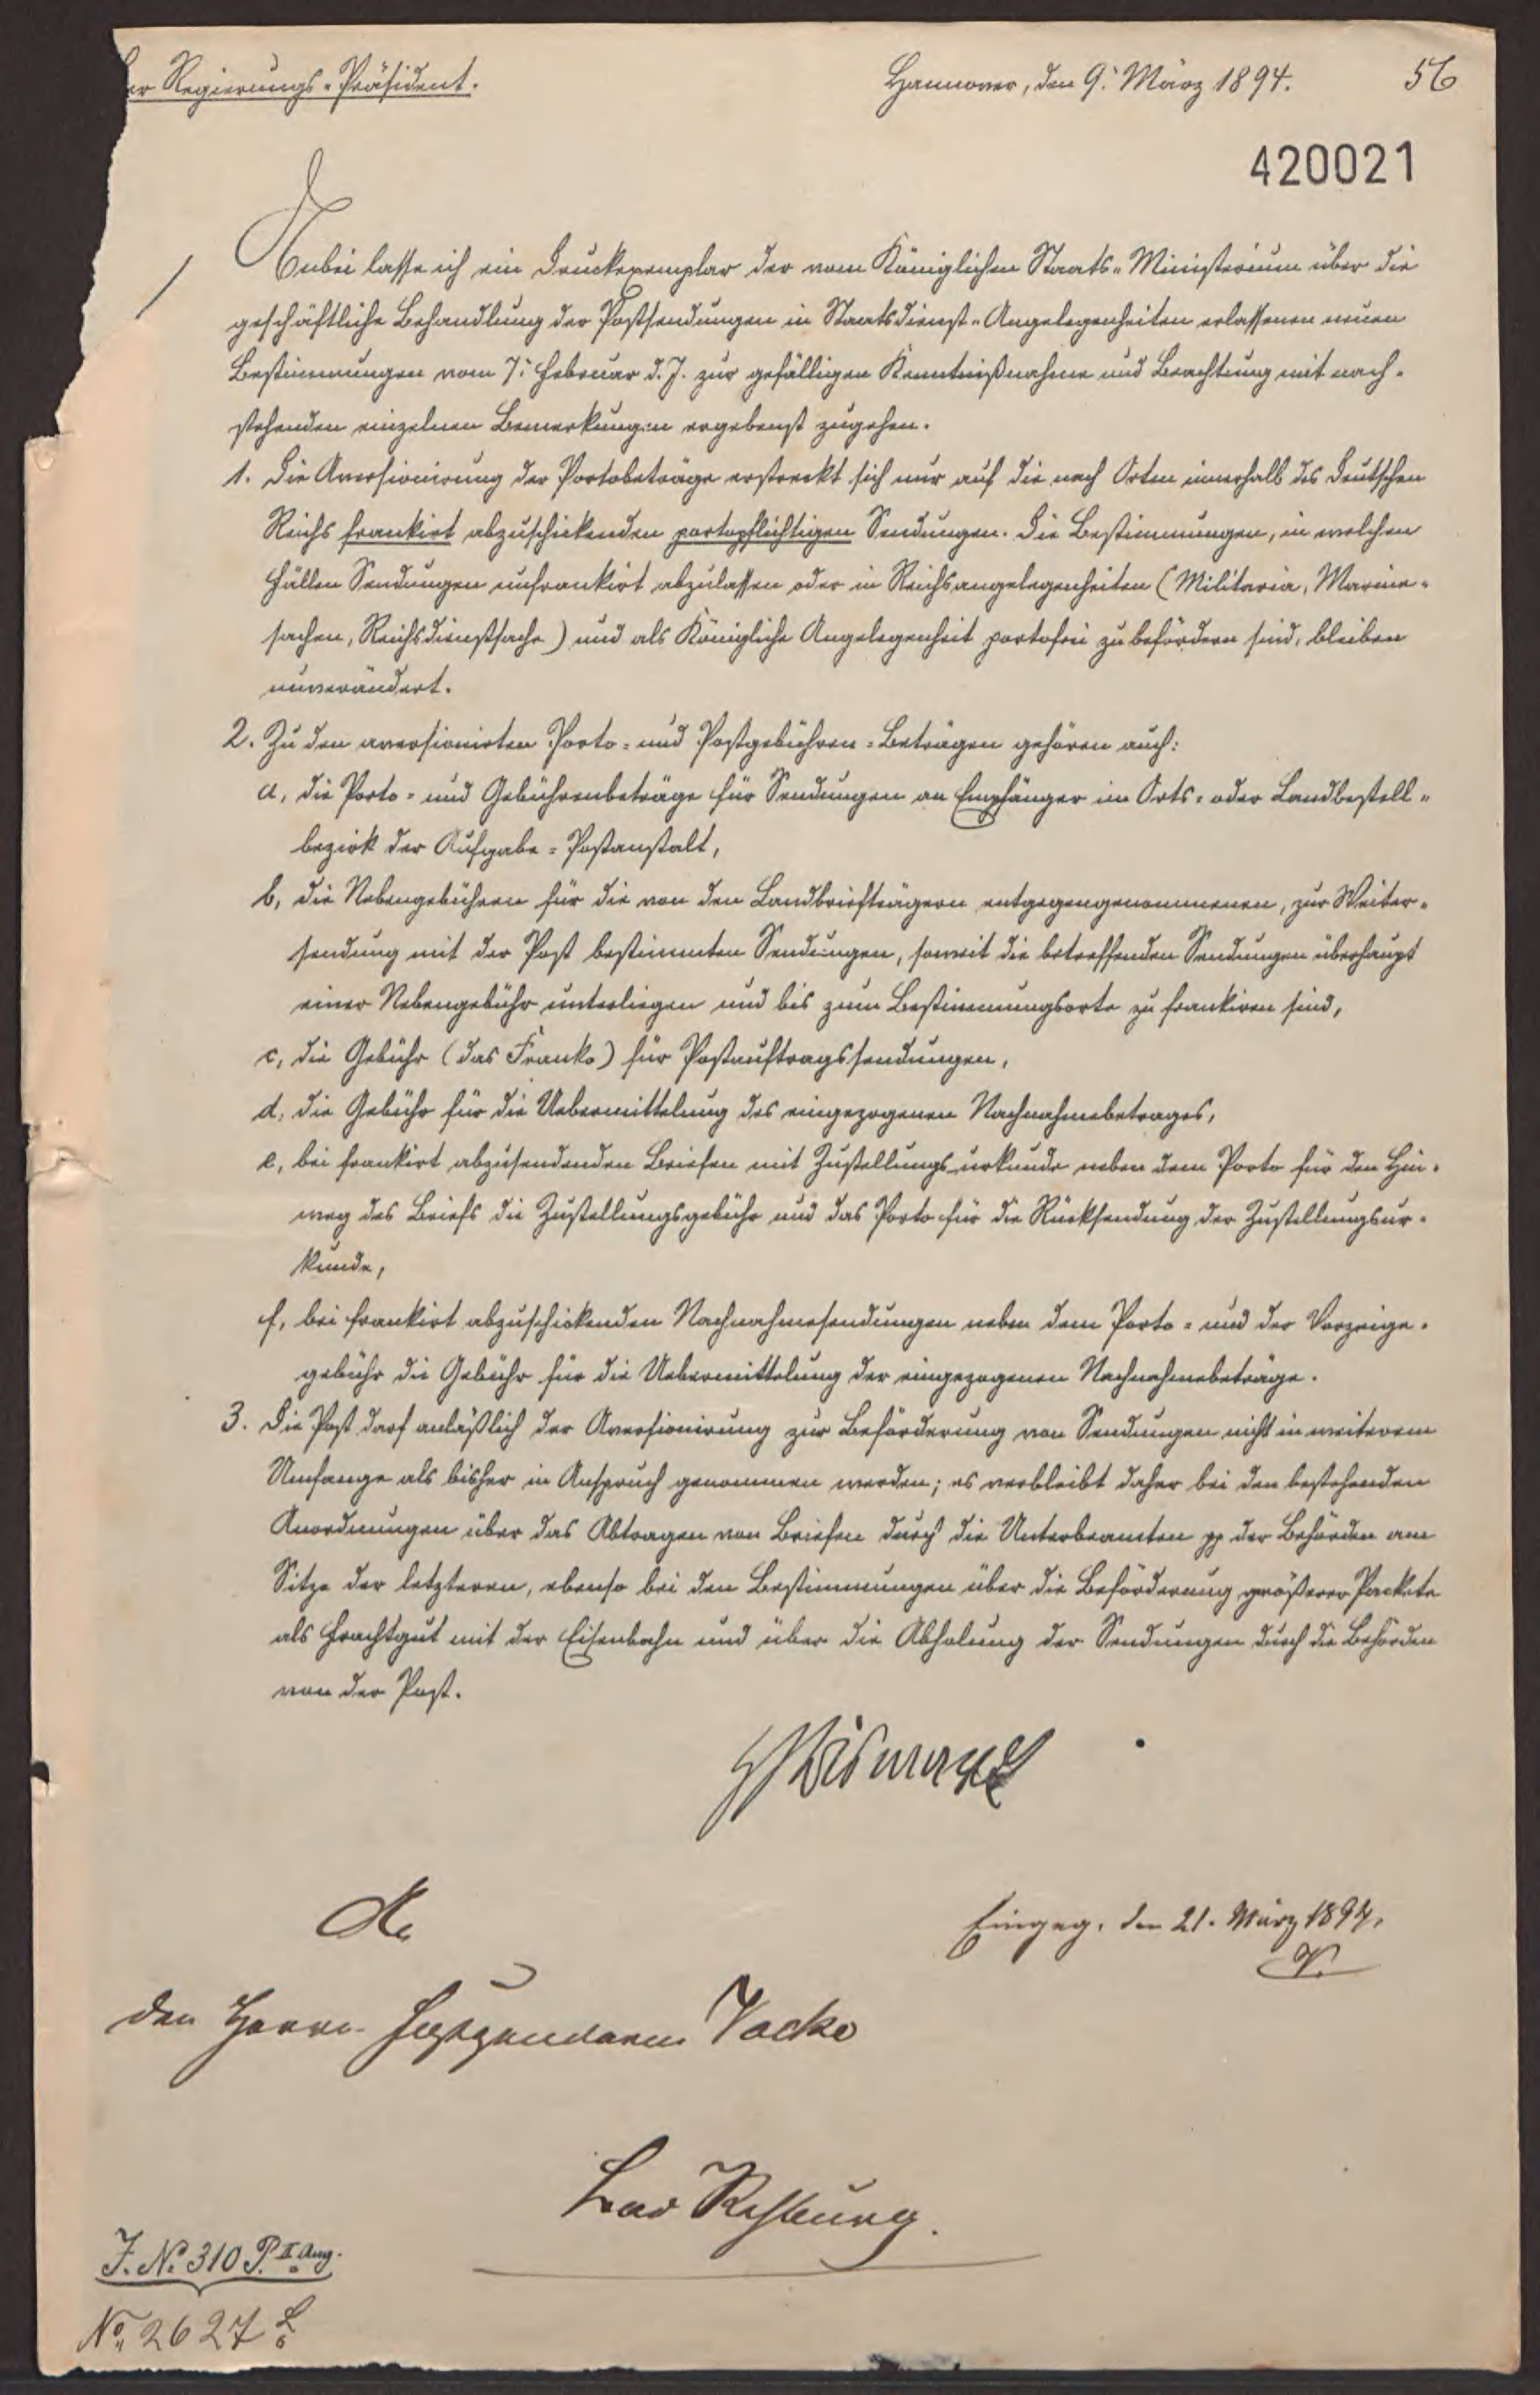 er Regierungs-Präsident.
Hannover, den 9. März 1894.
56
420021
Anbei lasse ich ein Druckexemplar der vom Königlichen Staats-Ministerium über die
geschäftliche Behandlung der Postsendungen in Staatsdienst-Angelegenheiten erlassenen neuen
Bestimmungen vom 7. Februar d. J. zur gefälligen Kenntnißnahme und Beachtung mit nach-
stehenden einzelnen Bemerkungen ergebenst zugehen.
1. Die Aversionirung der Portobeträge erstreckt sich nur auf die nach Orten innerhalb des Deutschen
Reichs frankirt abzuschickenden portopflichtigen Sendungen. Die Bestimmungen, in welchen
Fällen Sendungen unfrankirt abzulassen oder in Reichsangelegenheiten (Militaria, Marine-
sachen, Reichsdienstsache) und als Königliche Angelegenheit portofrei zu befördern sind, bleiben
unverändert.
2. Zu den aversionirten Porto- und Postgebühren-Beträgen gehören auch:
a, die Porto- und Gebührenbeträge für Sendungen an Empfänger im Orts- oder Landbestell-
bezirk der Aufgabe-Postanstalt,
b, die Nebengebühren für die von den Landbriefträgern entgegengenommenen, zur Weiter-
sendung mit der Post bestimmten Sendungen, soweit die betreffenden Sendungen überhaupt
einer Nebengebühr unterliegen und bis zum Bestimmungsorte zu frankiren sind,
c, die Gebühr (das Franko) für Postauftragssendungen,
d, die Gebühr für die Uebermittelung des eingezogenen Nachnahmebetrages,
e, bei frankirt abzusendenden Briefen mit Zustellungsurkunde neben dem Porto für den Hin-
weg des Briefs die Zustellungsgebühr und das Porto für die Rücksendung der Zustellungsur-
kunde,
f, bei frankirt abzuschickenden Nachnahmesendungen neben dem Porto- und der Vorzeige-
gebühr die Gebühr für die Uebermittelung der eingezogenen Nachnahmebeträge.
3. Die Post darf anläßlich der Aversionirung zur Beförderung von Sendungen nicht in weiterem
Umfange als bisher in Anspruch genommen werden; es verbleibt daher bei den bestehenden
Anordnungen über das Abtragen von Briefen durch die Unterbeamten pp der Behörden am
Sitze der letzteren, ebenso bei den Bestimmungen über die Beförderung größerer Packete
als Frachtgut mit der Eisenbahn und über die Abholung der Sendungen durch die Behörden
von der Post.
An
Eingeg. den 21. März 1894.
V.
den Herrn Fußgendarm Vacke
Bad Rehburg.
J. No 310 P. II Ang.
No 2627 L